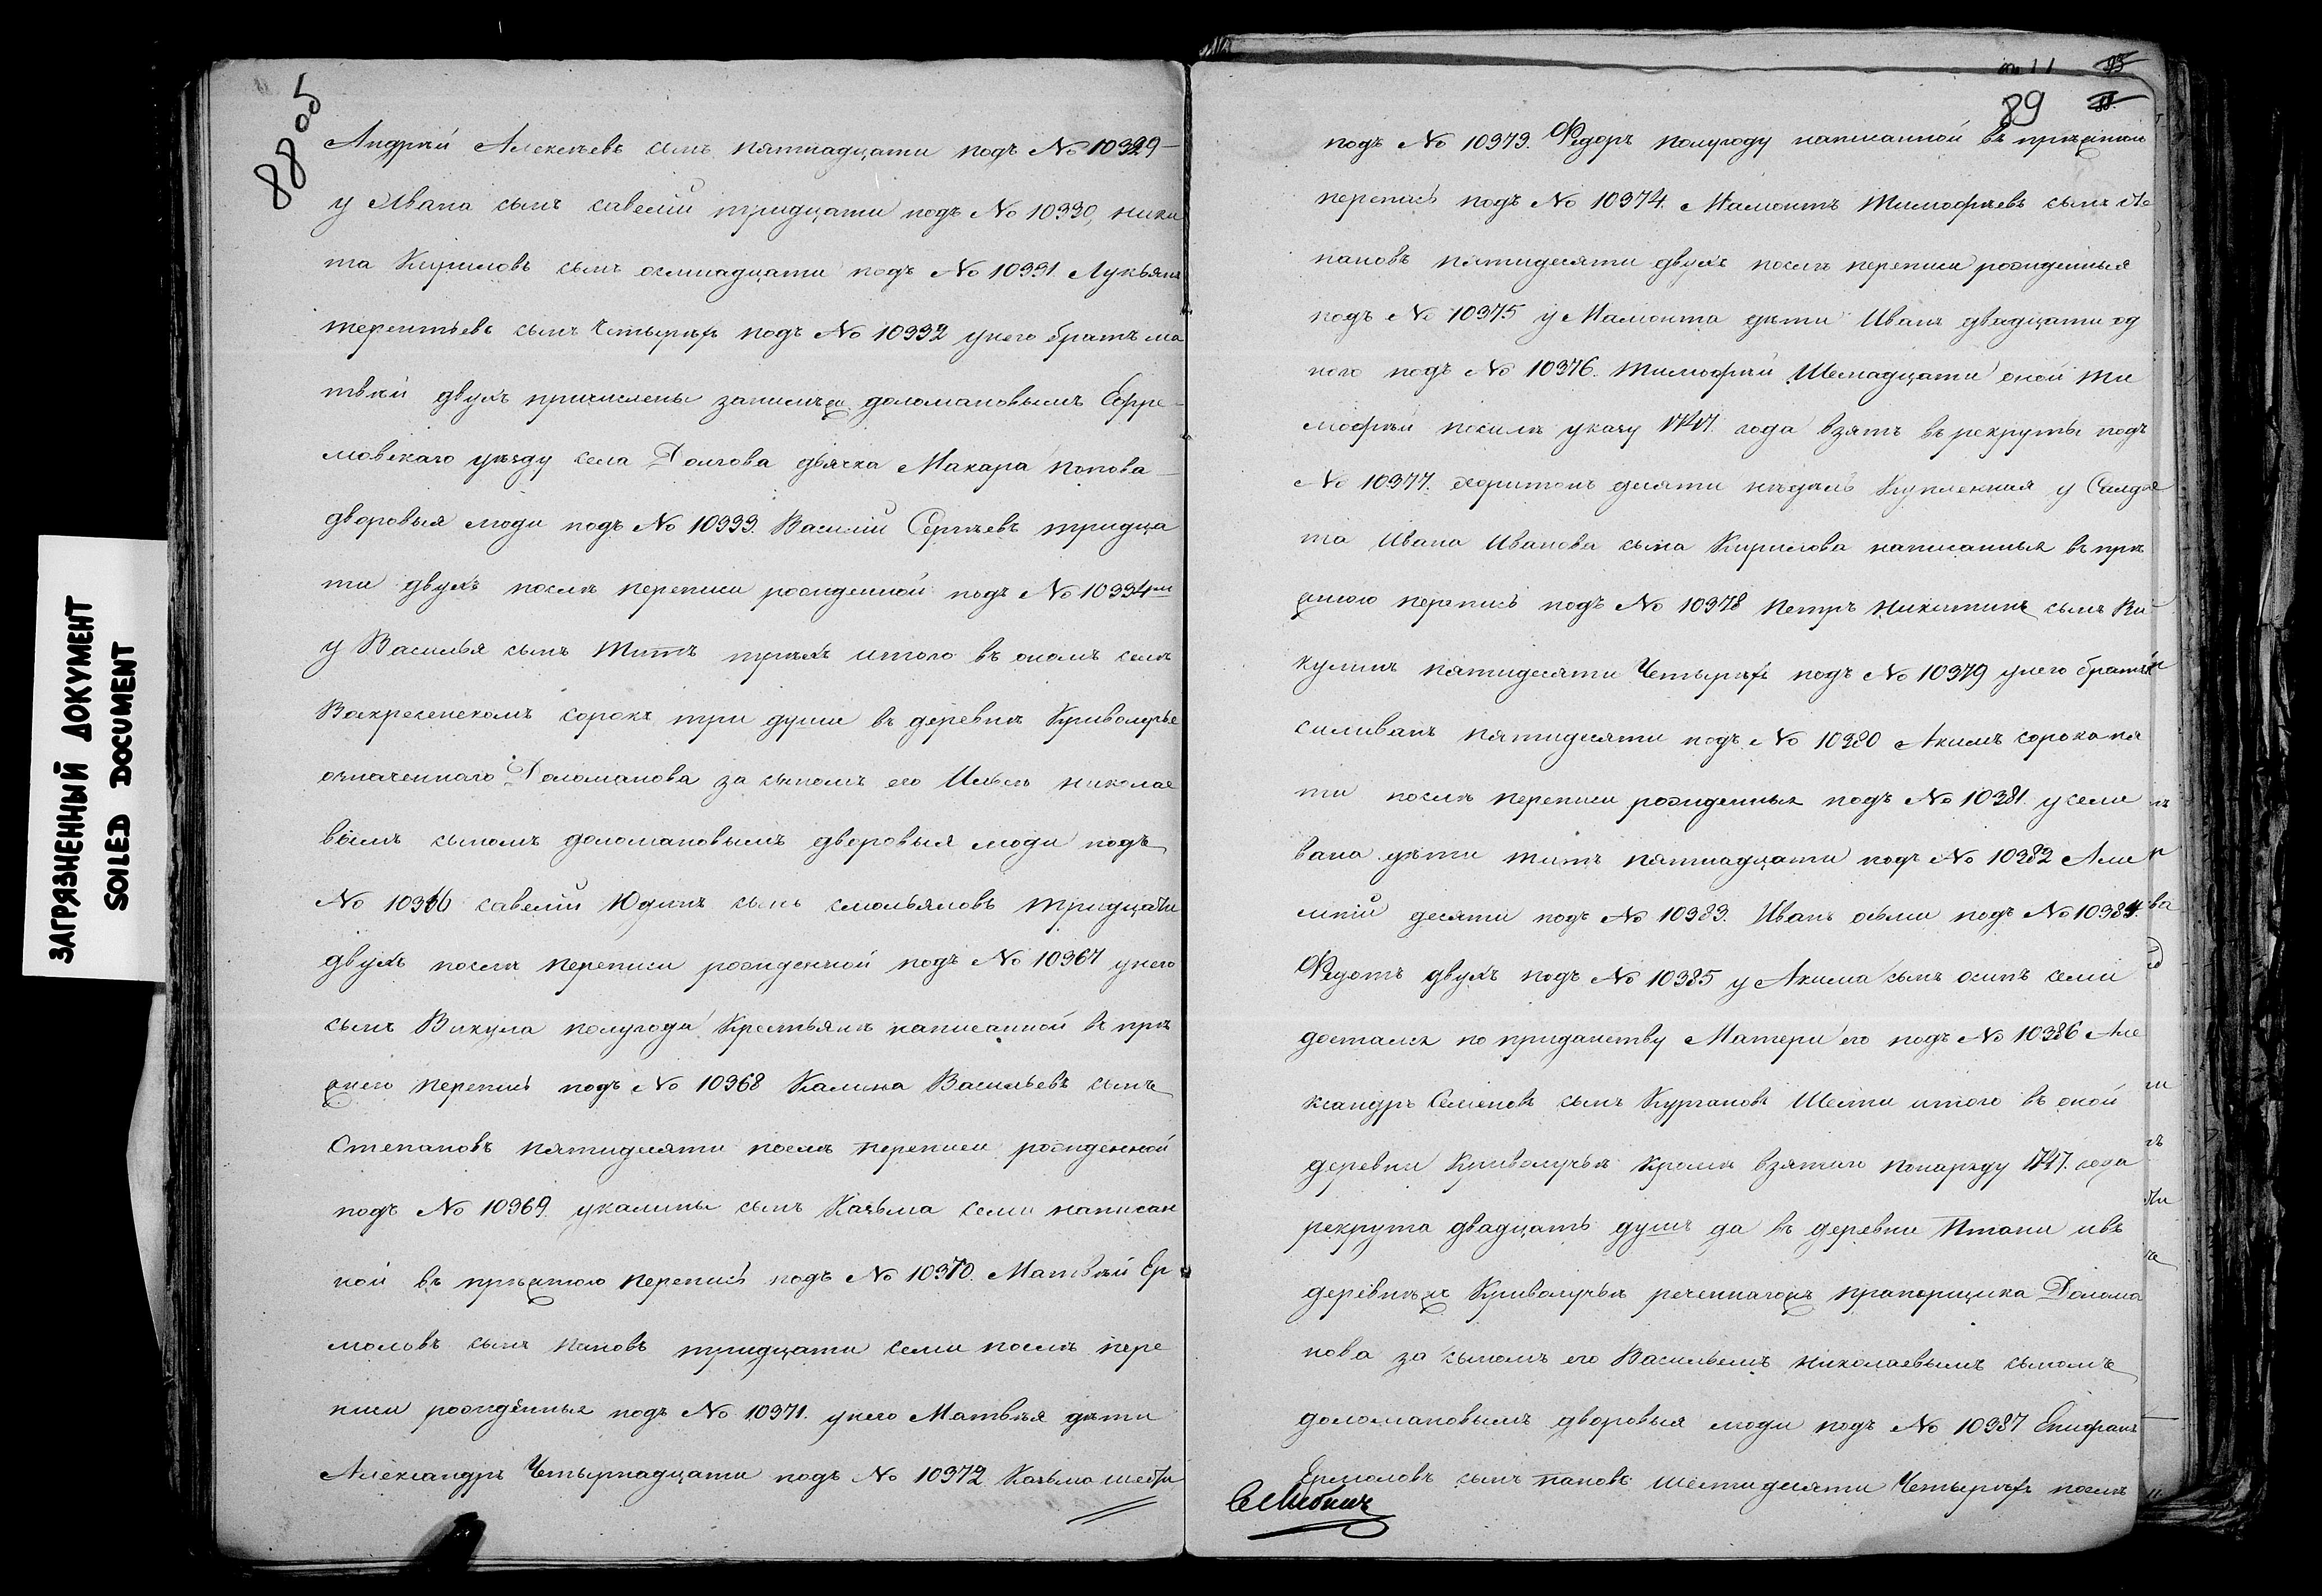 88 об
Андрей Алексеевъ сынъ пятнадцати подъ № 10329
у Ивана сынъ савелiй тридцати подъ № 10330, ники
та Кириловъ сынъ осмнадцати подъ № 10331. Лукьянъ
терентьевъ сынъ Четырехъ подъ № 10332 унего братъ ма
твѣй двухъ причислены занимъ доломановымъ Ефре
мовскаго уѣзду села Долгова дьячка Макара попова
дворовыя люди подъ № 10333. Василiй Сергѣевъ тридца
ти двухъ послѣ переписи рожденной подъ № 10334м
у Василья сынъ Титъ трехъ итого въ ономъ селѣ
Воскресенскомъ сорокъ три души въ деревнѣ Криволучье
означеннаго Доломанова за сыномъ его Ильею николае
вымъ сыномъ доломановымъ дворовыя люди подъ
№ 10366 савелiй Юдинъ сынъ смольяновъ тридцати
двухъ послѣ переписи рожденной подъ № 10367 унего
сынъ Викула полугода Крестьянъ написанной въ преж
нею перепись подъ № 10368 Калина Васильевъ сынъ
Степановъ пятидесяти послѣ переписи рожденной
подъ № 10369 укалины сынъ Казьма семи написан
ной въ прежнюю перепись подъ № 10370. Матвѣй Ер
моловъ сынъ пановъ тридцати семи послѣ пере
писи рожденныя подъ № 10371. унего Матвѣя дѣти
Александръ Четырнадцати подъ № 10372 Казьма шести
89
подъ № 10373. Федоръ полугоду написанной въ прежнюю
перепись подъ № 10374. Мамонтъ Тимофѣевъ сынъ сте
пановъ пятидесяти двухъ послѣ переписи рожденныя
подъ № 10375 у Мамонта дѣти Иванъ двадцати од
ного подъ № 10376. Тимофѣй Шеснадцати оной Ти
мофѣй посилѣ указу 1747 года взятъ въ рекруты подъ
№ 10377. харитонъ десяти недѣль Купленная у Салда
та Ивана Иванова сына Кирилова написанныя въ преж
нюю перепись подъ № 10378 Петръ Никитинъ сынъ Ви
кулинъ пятидесяти Четырехъ подъ № 10379 унего братья
силиванъ пятидесяти подъ № 10380 Акимъ сорока пя
ти послѣ переписи рожденныя подъ № 10381. усели
вана дѣти титъ пятнадцати подъ № 10382 Але
ксѣй десяти подъ № 10383. Иванъ осьми подъ № 10384.
Федотъ двухъ подъ № 10385 у Акима сынъ осипъ семи
достался по приданству Матери его подъ № 10386 Але
ксандръ Семеновъ сынъ Кургановъ Шести итого въ оной
деревни Криволучьѣ Кромѣ взятаго понаряду 1747. года
рекрута двадцать душъ да въ деревни Птани ивъ
деревнѣжъ Криволучьѣ реченнагожъ прапорщика Долома
нова за сыномъ его Васильемъ николаевымъ сыномъ
доломановымъ дворовыя люди подъ № 10387 Епифанъ
Ермоловъ сынъ пановъ шестидесяти Четырехъ послѣ
ЗАГРЯЗНЕННЫЙ ДОКУМЕНТ
SOILED DOCUMENT